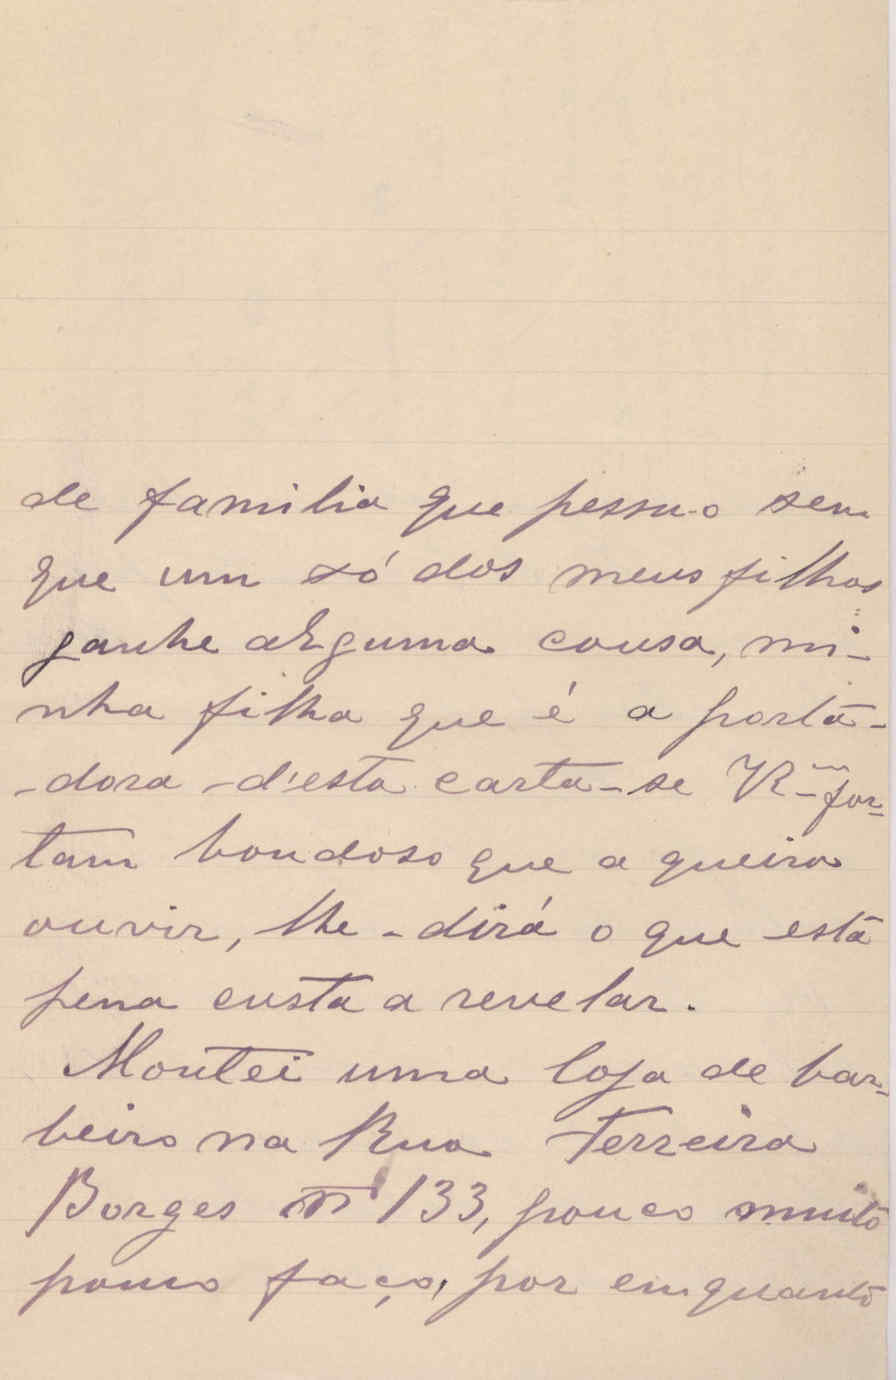 de familia que possuo sem
que um só dos meus filhos
ganhe alguma cousa, mi-
nha filha que é a porta-
-dora -d'esta carta-se V. for
tam bondoso que a queira
ouvir, lhe-dirá o que esta
pena custa a revelar.
Montei uma loja de bar-
beiro na Rua Ferreira
Borges nº 133, pouco muito
pouco faço, por emquanto